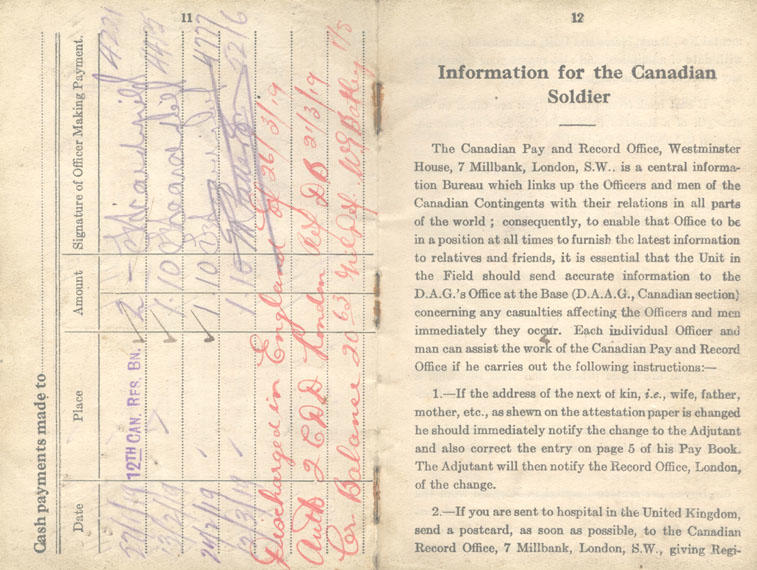 11
Cash payments made to
Date Place Amount Signature of Officer Making Payment.
12TH CAN. RES. BN. 2 -
13/2/19 1 10
1 10
1 10
Discharged in England 26/3/19
Auth 2 CDD London 21/3/19
Cr. Balance 20 63
12
Information for the Canadian
Soldier
The Canadian Pay and Record Office, Westminster
House, 7 Millbank, London, S.W.. is a central informa-
tion Bureau which links up the Officers and men of the
Canadian Contingents with their relations in all parts
of the world ; consequently, to enable that Office to be
in a position at all times to furnish the latest information
to relatives and friends, it is essential that the Unit in
the Field should send accurate information to the
D.A.G.'s Office at the Base (D.A.A.G., Canadian section)
concerning any casualties affecting the Officers and men
immediately they occur. Each individual Officer and
man can assist the work of the Canadian Pay and Record
Office if he carries out the following instructions:—
1.—If the address of the next of kin, i.e., wife, father,
mother, etc., as shewn on the attestation paper is changed
he should immediately notify the change to the Adjutant
and also correct the entry on page 5 of his Pay Book.
The Adjutant will then notify the Record Office, London,
of the change.
2.—If you are sent to hospital in the United Kingdom,
send a postcard, as soon as possible, to the Canadian
Record Office, 7 Millbank, London, S.W., giving Regi-